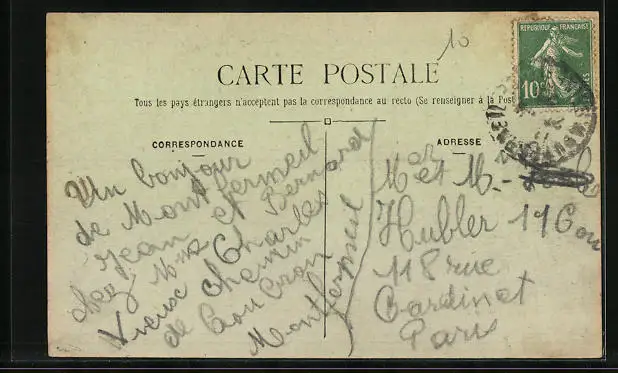 10
CARTE POSTALE
Tous les pays étrangers n'acceptent pas la correspondance au recto (Se renseigner à la Post
CORRESPONDANCE
ADRESSE
REPUBLIQUE FRANÇAISE
10
POSTES
Un bonjour
de Montfermeil
Jean et Bernard
chez Mme Charles
Vieux Chemin
de Coucron
Montfermeil
Mer et M.
Hubler
118 rue
Cardinet
Paris